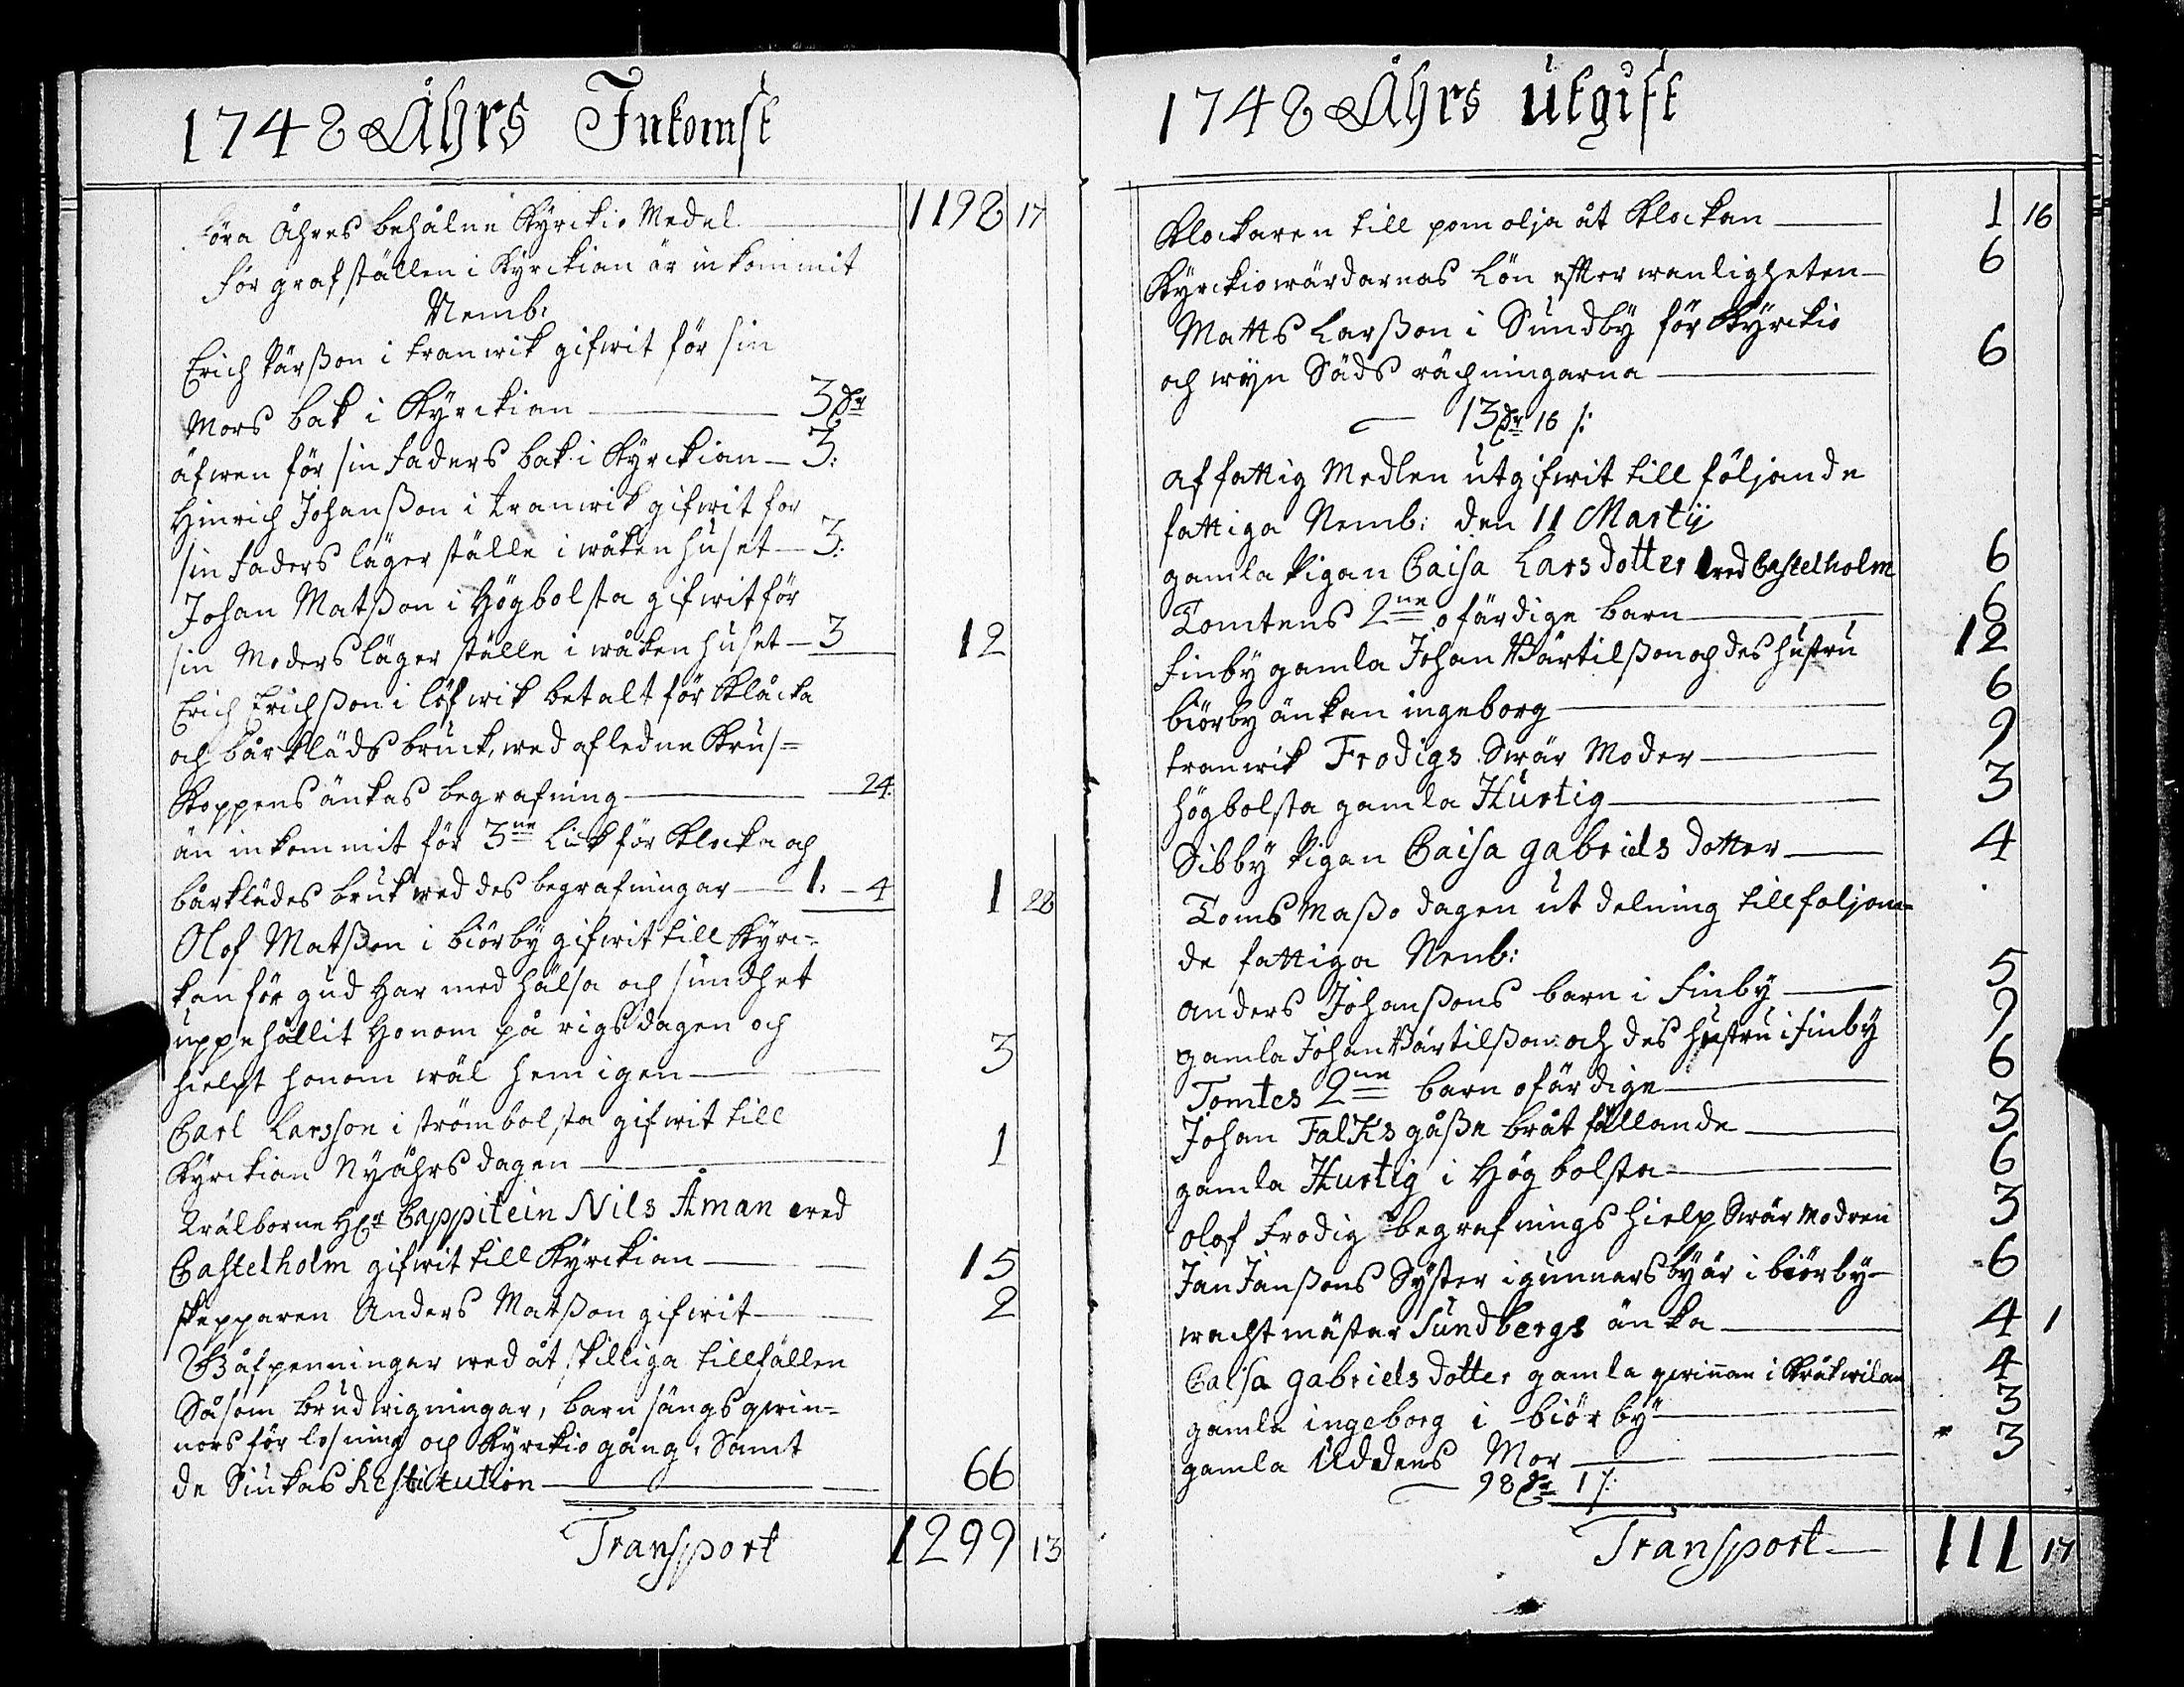 1748 Åhrs Inkomst
föra Åhres behålne Kyrckio Medel 1198 17
för grafställen i Kyrckian är inkommit
Nemb:
Erich Pärßon i tranwik gifwit för sin
Mors bak i Kyrckian 3 Dr
äfwen för sin faders bak i Kyrckian 3:
Hinrich Johanßon i tranwik gifwit for
sin faders läger ställe i wåkenhuset 3:
Johan Matßon i Högbolsta gifwit för
sin Moders läger ställe i wåkenhuset 3 12
Erich Erichßon i löfwik betalt för Klåcka
och bårkläds bruck, wed afledne Krus=
Koppens änkas begrafning 24.
än inkommit för 3ne Lick för Klocka och
bårklädes bruk wed des begrafningar 1. 4 1 28
Olof Matßon i biörby gifwit till Kyrc=
kan för gud Har med hälsa och sundhet
uppehållit Honom på rigsdagen och
hielpt honom wäl hem igen 3
Carl Larsson i strömbolsta gifwit till
Kyrckian Nyåhrsdagen 1
Wälborne Hr Cappitein Nils Åman wed
Castelholm gifwit till Kyrckian 15
skepparen Anders Matßon gifwit 2
Håfpenningar wed åtskilliga tillfällen
Såsom brudwigningar, barnsängsqwin=
nors förlosning och Kyrckiogång, Samt
de Siukas Restitution 66
Transport 1299 13
1748 Åhrs utgift
Klockaren till pomolja åt Klockan 1 16
Kyrckiowärdarnas Lön effter wanligheten 6
Matts Larßon i Sundby för Kyrckio
och wyn Säds räckningarna 6
13 Dr 16 /:
af fattig Medlen utgifwit till följande
fattiga Nemb: den 11 Martij
gamla Pigan Caisa Larsdotter wed Castelholm 6
Tomtens 2ne ofärdige barn 6
Finby gamla Johan Bärtilßon och des hustru 12
biörby änkan ingeborg 6
tranwik Frodigs Swär Moder 9
högbolsta gamla Hurtig 3
Sibby Pigan Caisa gabriels dotter 4
Toms Maßo dagen utdelning till foljan=
de fattiga Nemb:
Anders Johanßons barn i Finby 5
gamla Johan Bärtilßon och des hustru i Finby 9
Tomtes 2ne barn ofärdige 6
Johan Falks gåße bråtfallande 3
gamla Hurtig i Högbolsta 6
olof Frodig begrafnings hielp Swär modren 3
Jan Janßons Syster i gunnarsby är i biörby 6
wachtmästar Sundbergs änka 4 1
Caisa gabriels dotter gamla qwinnan i Kråkwilan 4
gamla ingeborg i biörby 3
gamla Uddens Mor 3
98 Dr 1 /:
Transport 111 17